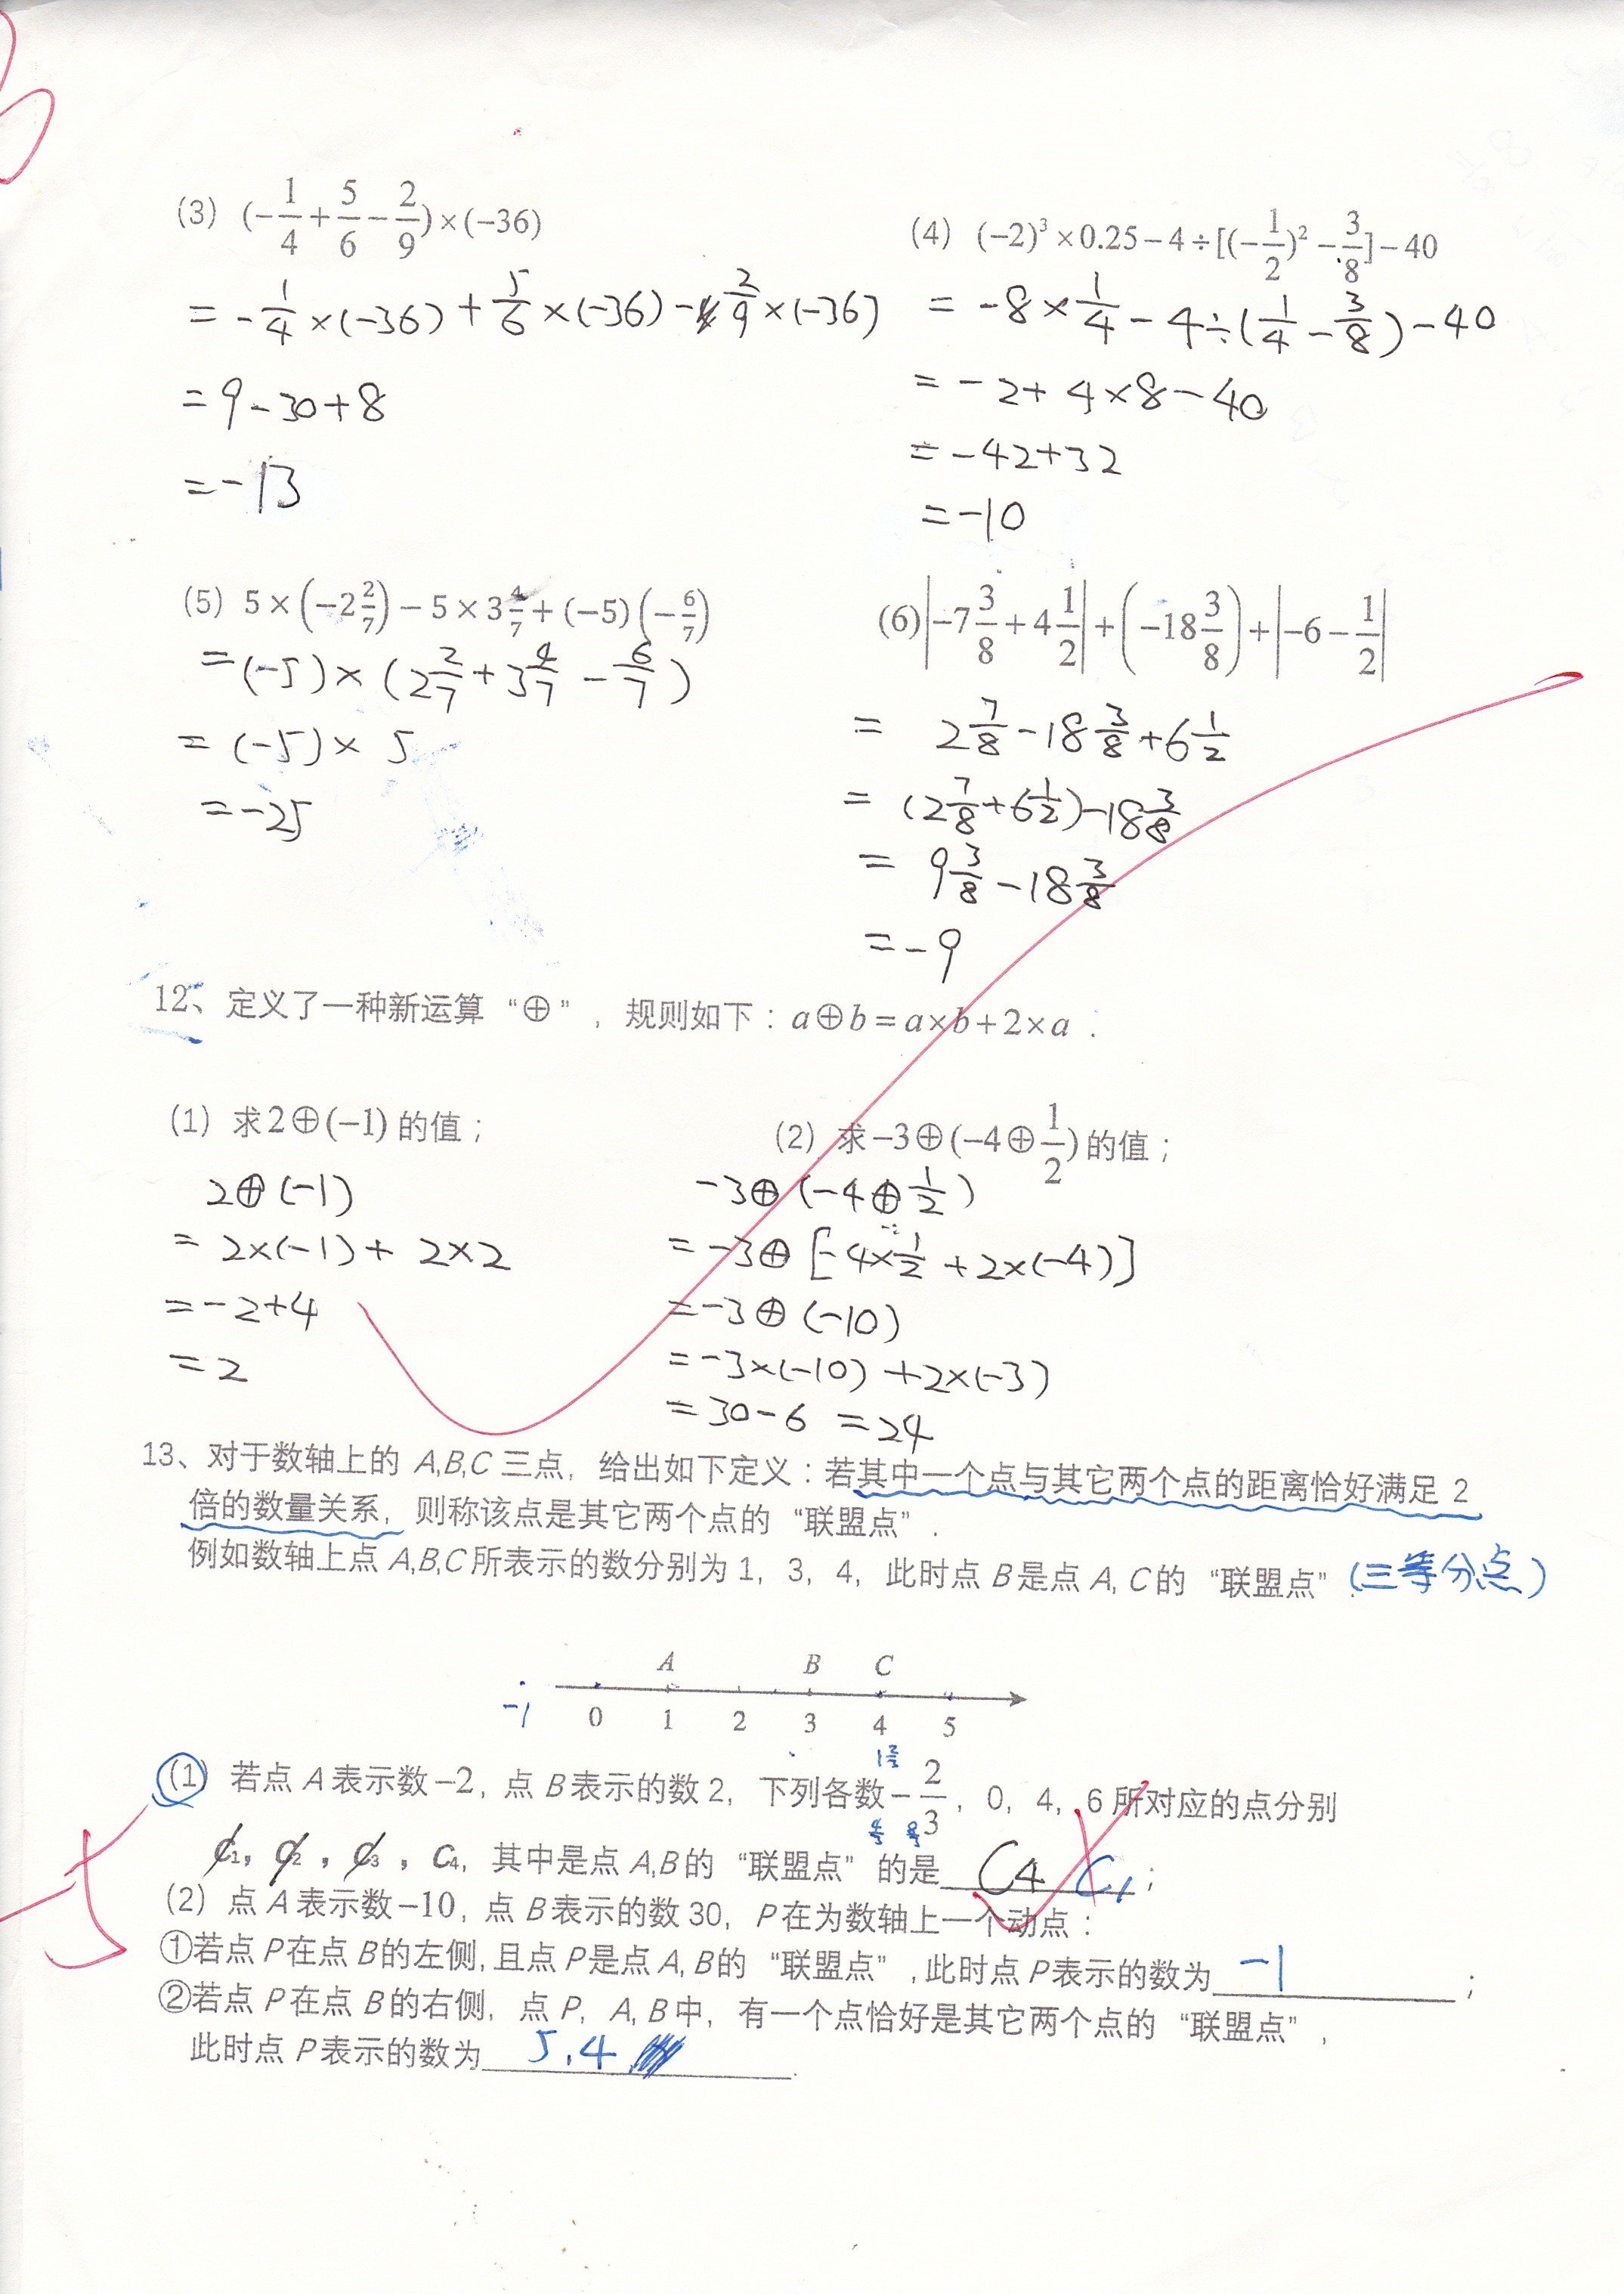 (3) (-1/4+5/6-2/9)×(-36)
= -1/4×(-36)+5/6×(-36)-2/9×(-36)
= 9-30+8
= -13
(4) (-2)³×0.25-4÷[(-1/2)²-3/8]-40
= -8×1/4-4÷(1/4-3/8)-40
= -2+4×8-40
= -42+32
= -10
(5) 5×(-2 2/7)-5×3 4/7+(-5)(-6/7)
= (-5)×(2 2/7+3 4/7-6/7)
= (-5)×5
= -25
(6) |-7 3/8+4 1/2|+(-18 3/8)+|-6-1/2|
= 2 7/8-18 3/8+6 1/2
= (2 7/8+6 1/2)-18 3/8
= 9 3/8-18 3/8
= -9
12、定义了一种新运算“⊕”，规则如下：a⊕b=a×b+2×a：
(1) 求2⊕(-1)的值；
2⊕(-1)
= 2×(-1)+2×2
= -2+4
= 2
(2) 求-3⊕(-4⊕1/2)的值；
-3⊕(-4⊕1/2)
= -3⊕[-4×1/2+2×(-4)]
= -3⊕(-10)
= -3×(-10)+2×(-3)
= 30-6 =24
13、对于数轴上的 A,B,C 三点，给出如下定义：若其中一个点与其它两个点的距离恰好满足 2
倍的数量关系，则称该点是其它两个点的“联盟点”.
例如数轴上点 A,B,C所表示的数分别为 1，3，4，此时点 B是点 A, C的“联盟点”. (三等分点)
A B C
-1 0 1 2 3 4 5
(1) 若点 A 表示数-2，点 B 表示的数 2，下列各数-2/3，0，4，6 所对应的点分别
C₁，C₂，C₃，C₄，其中是点 A,B的“联盟点”的是 C4 C1；
(2) 点 A 表示数-10，点 B 表示的数 30，P在为数轴上一个动点：
①若点 P在点 B的左侧,且点 P是点 A, B的“联盟点”,此时点 P表示的数为 -1；
②若点 P在点 B的右侧，点 P，A, B中，有一个点恰好是其它两个点的“联盟点”，
此时点 P表示的数为 5.4.